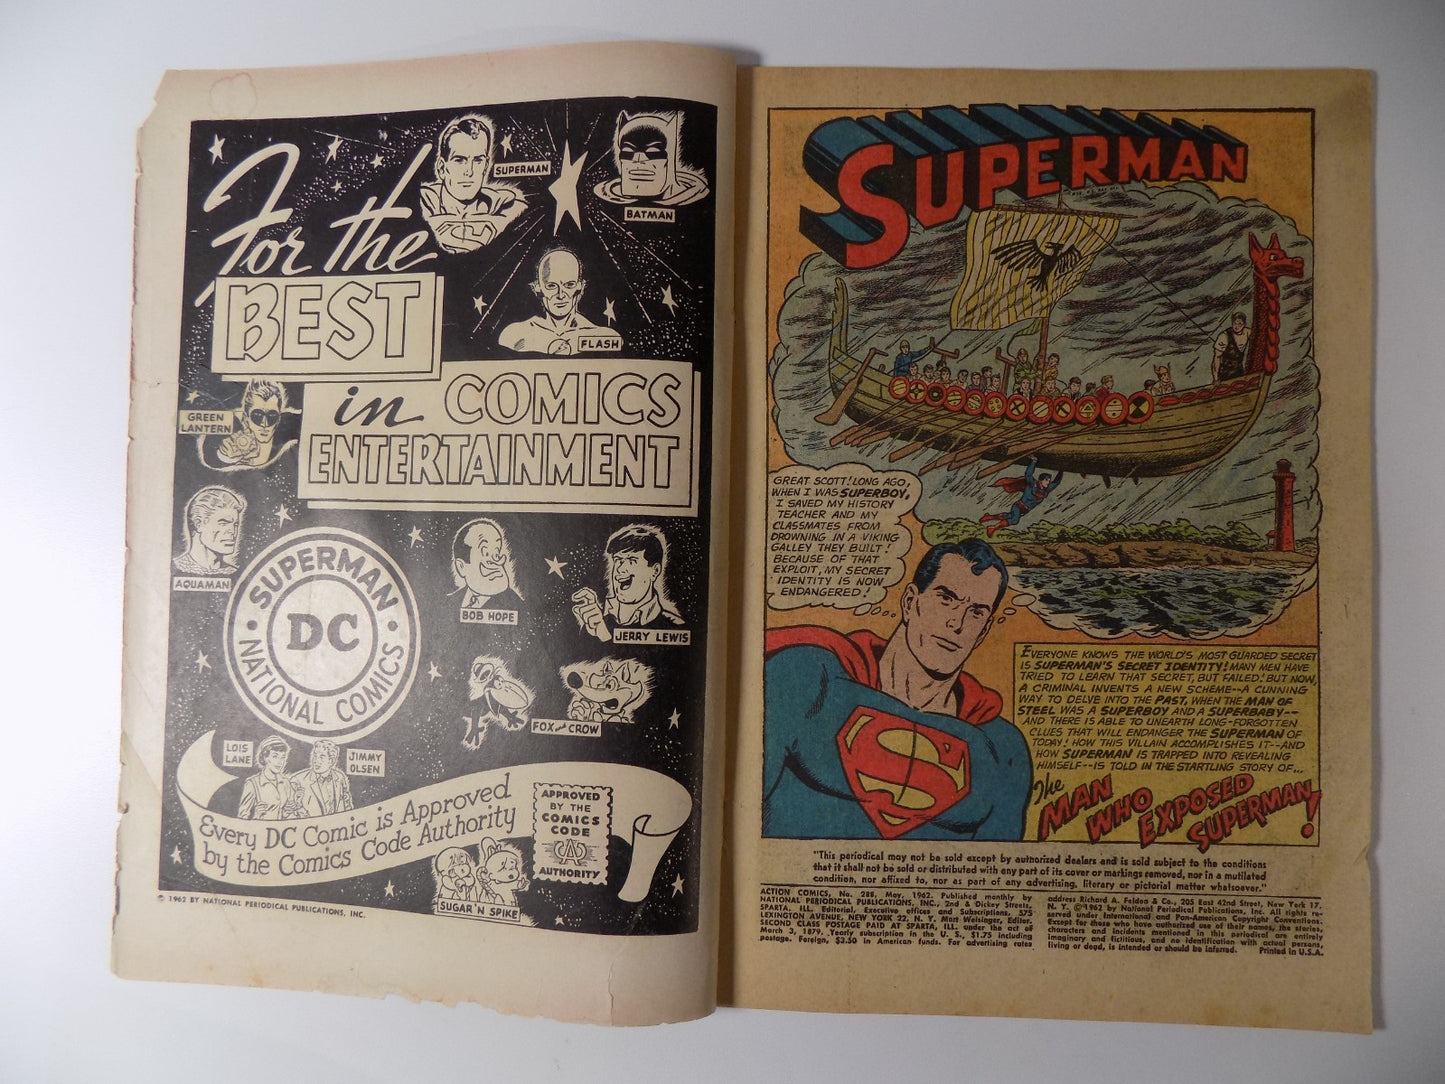 For the
BEST
in COMICS
ENTERTAINMENT
SUPERMAN
BATMAN
FLASH
GREEN
LANTERN
AQUAMAN
SUPERMAN
DC
NATIONAL COMICS
BOB HOPE
JERRY LEWIS
FOX AND CROW
LOIS
LANE
JIMMY
OLSEN
Every DC Comic is Approved
by the Comics Code Authority
APPROVED
BY THE
COMICS
CODE
AUTHORITY
SUGAR 'N SPIKE
© 1962 BY NATIONAL PERIODICAL PUBLICATIONS, INC.
SUPERMAN
GREAT SCOTT! LONG AGO,
WHEN I WAS SUPERBOY,
I SAVED MY HISTORY
TEACHER AND MY
CLASSMATES FROM
DROWNING IN A VIKING
GALLEY THEY BUILT!
BECAUSE OF THAT
EXPLOIT, MY SECRET
IDENTITY IS NOW
ENDANGERED!
EVERYONE KNOWS THE WORLD'S MOST GUARDED SECRET
IS SUPERMAN'S SECRET IDENTITY! MANY MEN HAVE
TRIED TO LEARN THAT SECRET, BUT FAILED! BUT NOW,
A CRIMINAL INVENTS A NEW SCHEME--A CUNNING
WAY TO DELVE INTO THE PAST, WHEN THE MAN OF
STEEL WAS A SUPERBOY AND A SUPERBABY--
AND THERE IS ABLE TO UNEARTH LONG-FORGOTTEN
CLUES THAT WILL ENDANGER THE SUPERMAN OF
TODAY! HOW THIS VILLAIN ACCOMPLISHES IT--AND
HOW SUPERMAN IS TRAPPED INTO REVEALING
HIMSELF--IS TOLD IN THE STARTLING STORY OF...
The MAN
WHO EXPOSED
SUPERMAN!
"This periodical may not be sold except by authorized dealers and is sold subject to the conditions
that it shall not be sold or distributed with any part of its cover or markings removed, nor in a mutilated
condition, nor affixed to, nor as part of any advertising, literary or pictorial matter whatsoever."
ACTION COMICS, No. 288, May, 1962. Published monthly by
NATIONAL PERIODICAL PUBLICATIONS, INC., 2nd & Dickey Streets,
SPARTA, ILL. Editorial, Executive offices and Subscriptions, 575
LEXINGTON AVENUE, NEW YORK 22, N. Y. Mort Weisinger, Editor.
SECOND CLASS POSTAGE PAID AT SPARTA, ILL. under the act of
March 3, 1879. Yearly subscription in the U. S., $1.75 including
postage. Foreign, $3.50 in American funds. For advertising rates
address Richard A. Feldon & Co., 205 East 42nd Street, New York 17.
N. Y. ©1962 by National Periodical Publications, Inc. All rights re-
served under International and Pan-American Copyright Conventions.
Except for those who have authorized use of their names, the stories,
characters and incidents mentioned in this periodical are entirely
imaginary and fictitious, and no identification with actual persons,
living or dead, is intended or should be inferred. Printed in U.S.A.